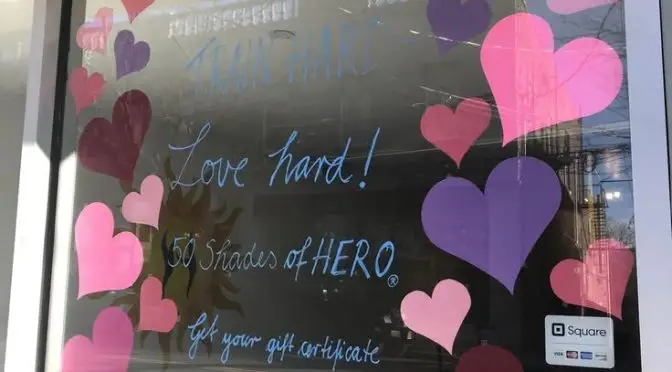 TRAIN HARD -
Love hard!
50 Shades of HERO®
Get your gift certificate
Square
VISA